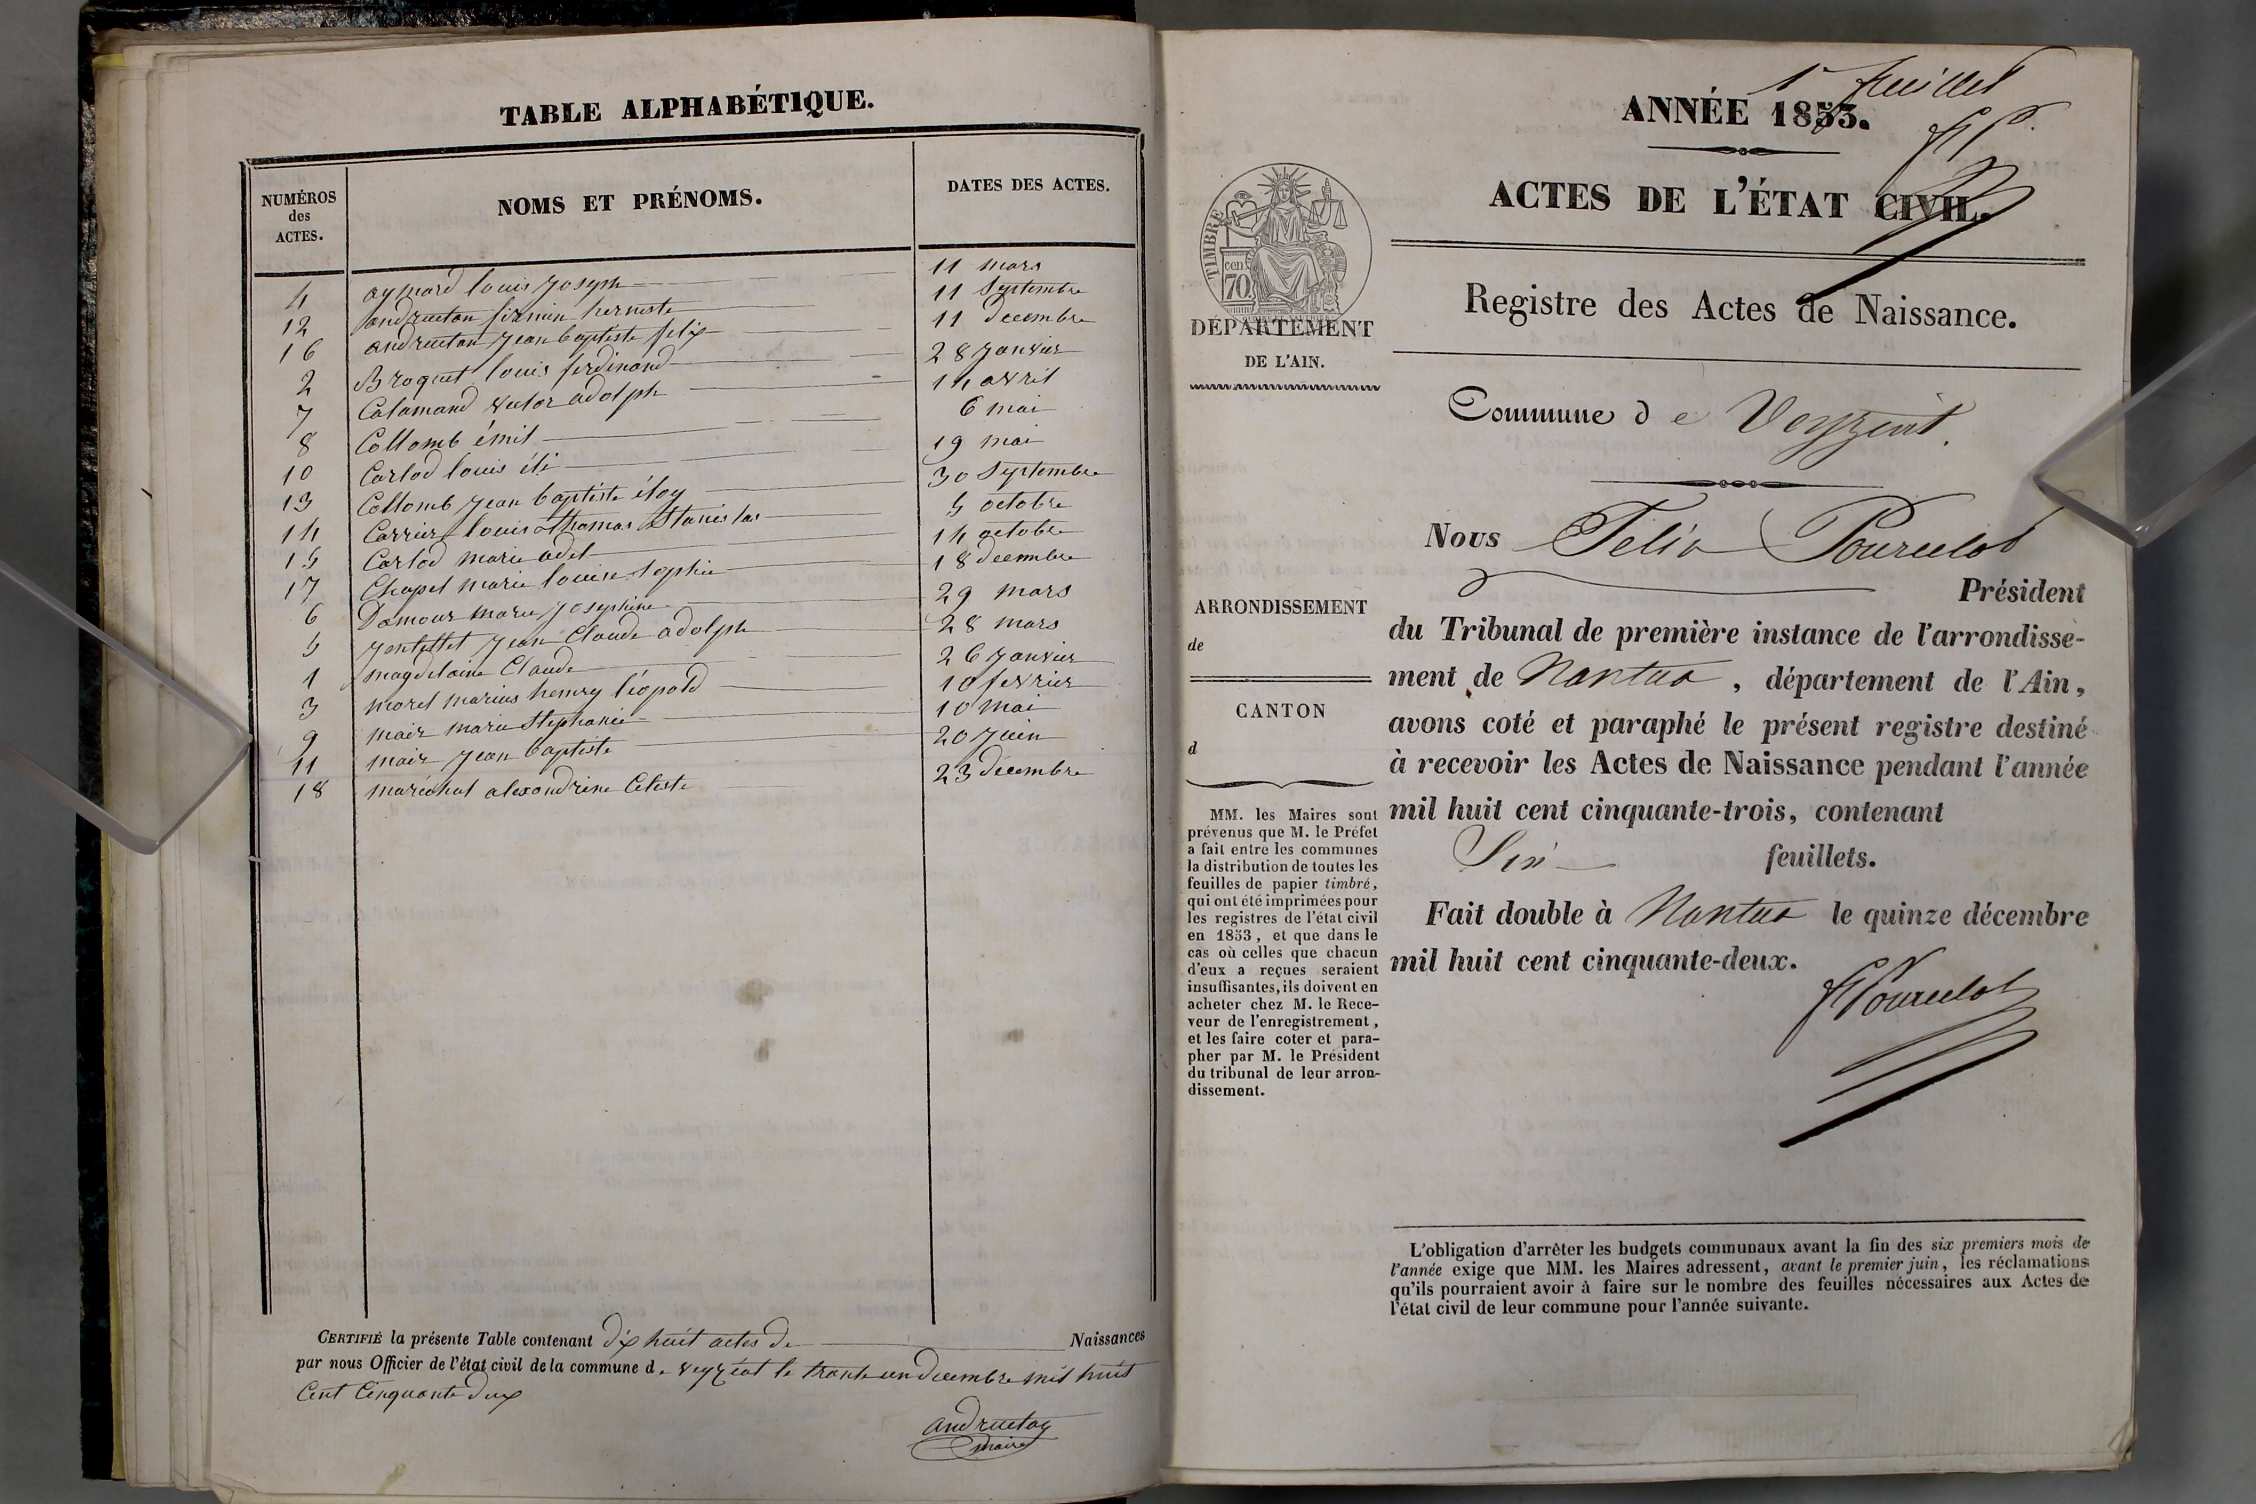 TABLE ALPHABÉTIQUE.
NUMÉROS des ACTES. NOMS ET PRÉNOMS. DATES DES ACTES.
4 aymard louis joseph 11 mars
12 andruetan firmin herneste 11 Septembre
16 andruetan jean baptiste felix 11 decembre
2 Broquet louis ferdinand 28 janvier
7 Calamand victor adolph 14 avril
8 Collomb émil 6 mai
10 Carlod louis éli 19 mai
13 Collomb jean baptiste éloy 30 Septembre
14 Carrier louis thomas Stanislas 5 octobre
15 Carlod marie adel 14 octobre
17 Chapel marie louise Sophie 18 decembre
6 Damour marie josephine 29 mars
5 jentellet jean Claude adolph 28 mars
1 magdelaine Claude 26 janvier
3 morel marius henry léopold 10 fevrier
9 mair marie Stephanie 10 mai
11 mair jean baptiste 20 juin
18 maréchal alexandrine Celeste 23 decembre
CERTIFIÉ la présente Table contenant dix huit actes de Naissances
par nous Officier de l'état civil de la commune de veyziat le trante un decembre mil huit
Cent Cinquante dux
andruetan
maire
1er feuillet
ANNÉE 1853.
FP.
ACTES DE L'ÉTAT CIVIL.
TIMBRE
70 cen
DÉPARTEMENT
DE L'AIN.
Registre des Actes de Naissance.
Commune de Veyziat.
Nous Félix Pourcelot
Président
du Tribunal de première instance de l'arrondisse-
ment de Nantua, département de l'Ain,
avons coté et paraphé le présent registre destiné
à recevoir les Actes de Naissance pendant l'année
mil huit cent cinquante-trois, contenant
Six feuillets.
Fait double à Nantua le quinze décembre
mil huit cent cinquante-deux.
FPourcelot
ARRONDISSEMENT
de
CANTON
d
MM. les Maires sont
prévenus que M. le Préfet
a fait entre les communes
la distribution de toutes les
feuilles de papier timbré,
qui ont été imprimées pour
les registres de l'état civil
en 1853, et que dans le
cas où celles que chacun
d'eux a reçues seraient
insuffisantes, ils doivent en
acheter chez M. le Rece-
veur de l'enregistrement,
et les faire coter et para-
pher par M. le Président
du tribunal de leur arron-
dissement.
L'obligation d'arrêter les budgets communaux avant la fin des six premiers mois de
l'année exige que MM. les Maires adressent, avant le premier juin, les réclamations
qu'ils pourraient avoir à faire sur le nombre des feuilles nécessaires aux Actes de
l'état civil de leur commune pour l'année suivante.